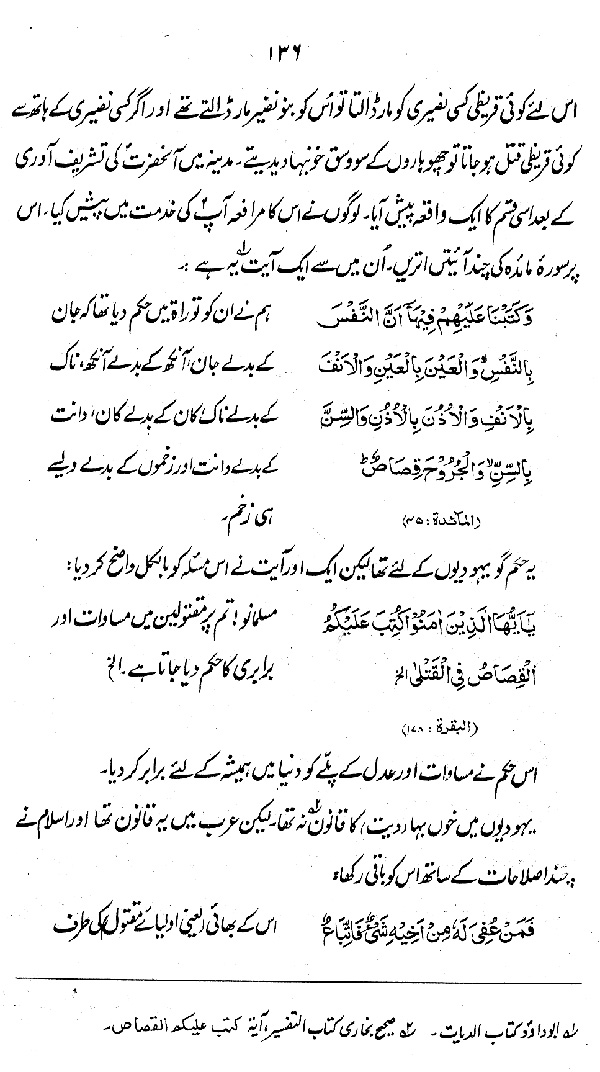 ۱۳۶
اس لئے کوئی قریظی کسی نضیری کو مار ڈالتا تو اُس کو بنو نضیر مار ڈالتے تھے اور اگر کسی نضیری کے ہاتھ سے
کوئی قریظی قتل ہو جاتا تو چھوہاروں کے سو وسق خونبہا دیدیتے۔ مدینہ میں آنحضرتؐ کی تشریف آوری
کے بعد اسی قسم کا ایک واقعہ پیش آیا۔ لوگوں نے اس کا مرافعہ آپؐ کی خدمت میں پیش کیا۔ اس
پر سورۂ مائدہ کی چند آیتیں اتریں۔ اُن میں سے ایک آیت یہ ہے :۔
وَكَتَبْنَا عَلَيْهِمْ فِيهَآ أَنَّ النَّفْسَ ہم نے ان کو توراۃ میں حکم دیا تھا کہ جان
بِالنَّفْسِ وَالْعَيْنَ بِالْعَيْنِ وَالْاَنْفَ کے بدلے جان، آنکھ کے بدلے آنکھ، ناک
بِالْاَنْفِ وَالْاُذُنَ بِالْاُذُنِ وَالسِّنَّ کے بدلے ناک، کان کے بدلے کان، دانت
بِالسِّنِّ وَالْجُرُوْحَ قِصَاصٌ ط کے بدلے دانت اور زخموں کے بدلے ویسے
(المائدۃ : ۴۵) ہی زخم۔
یہ حکم گو یہودیوں کے لئے تھا لیکن ایک اور آیت نے اس مسئلہ کو بالکل واضح کر دیا :
يٰاَيُّهَا الَّذِيْنَ اٰمَنُوْا كُتِبَ عَلَيْكُمُ مسلمانو! تم پر مقتولین میں مساوات اور
الْقِصَاصُ فِي الْقَتْلٰى الخ برابری کا حکم دیا جاتا ہے۔ الخ
(البقرۃ : ۱۷۸)
اس حکم نے مساوات اور عدل کے پلّے کو دنیا میں ہمیشہ کے لئے برابر کر دیا۔
یہودیوں میں خوں بہا (دیت) کا قانون نہ تھا۔ لیکن عرب میں یہ قانون تھا اور اسلام نے
چند اصلاحات کے ساتھ اس کو باقی رکھا۔
فَمَنْ عُفِيَ لَهٗ مِنْ اَخِيْهِ شَيْءٌ فَاتِّبَاعٌ اس کے بھائی (یعنی اولیائے مقتول) کی طرف
لہ ابوداؤد کتاب الدیات۔ ۲ہ صحیح بخاری کتاب التفسیر، آیۃ کتب علیکم القصاص۔